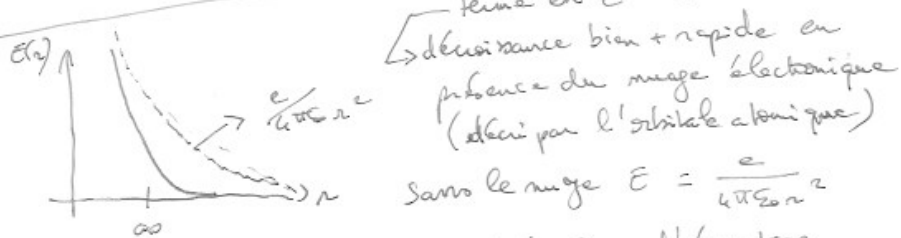 terme en
↳ décroissance bien + rapide en
présence du nuage électronique
(décri par l'orbitale atomique)
sans le nuage E = e/4πε₀r²
E(r)
e/4πε₀r²
r
a₀